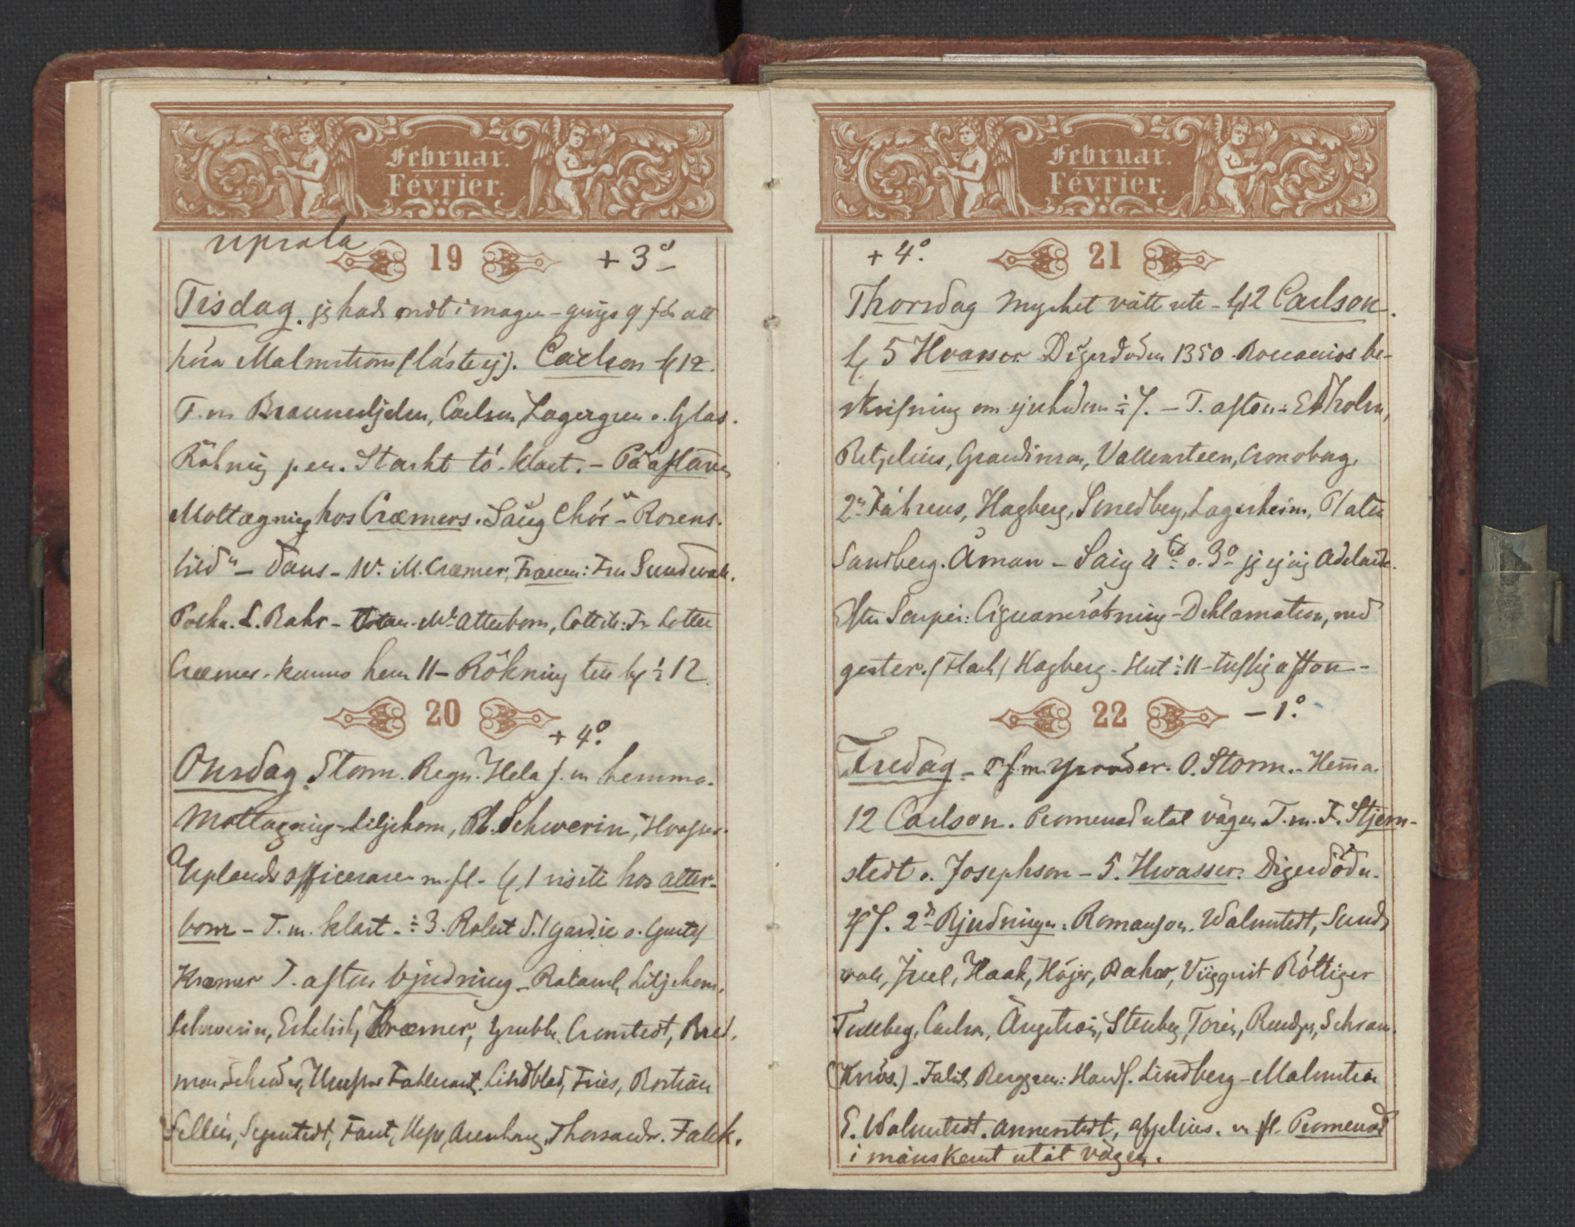 Februar.
Février.
upsala
19 + 3°
Tisdag. jg hade ondt i magen - gings 9 för att
höra Malmström (läste ej). Carlson ½12.
F.m Braunerhjelm, Carlson, Lagergren o. Glas.
Rökning per. Starkt tö - klart. - På aftonen
Mottagning hos Cræmers. Sång Chör "Rosens.
bild" - Dans - W. M. Cræmer, Franc: Frn Sundevall.
Poska. L. Bahr - Mr Atterbom, Cottilj: Fr Lotten
Cræmer. kunno hem 11 - Rökning till kl ½ 12.
20 + 4°.
Onsdag. Storm. Regn. Hela f.m hemma.
Mottagning - Liljehorn, Rl. Schwerin, Hvasser.
Uplands officerare m. fl. - kl 1 visite hos atter-
bom - F.m. klart - ½ 3. Robert D. l. gardie o. Gustaf
Kræmer T. aften bjudning - Ralamb, Liljehorn,
Schwerin, Kræmer, Grubbe, Cronstedt, Bred.
man, Schröder, Fahlcrant, Lindblad, Fries, Boström
Sellén, Segerstedt, Fant, Arenhoug, Thorsander. Falck.
Februar.
Février.
+ 4°. 21
Thorsdag mycket vått ute - ½12 Carlson.
kl 5 Hvasser Digerdöden 1350 - Boccacios be-
skrifning om sjukdomen ½ 7. - T. afton: Edholm,
Retzelius, Grandinson, Vallensteen, Cronoberg,
2ne Fåhreus, Hagberg, Smedberg, Lagerheim, Platen
Sandberg. Åman - Sång 4 o. 3° jg ej Adelaide.
Efter Soupén: Cigarrrökning - Deklamation, med
gester. (Flach) Hagberg. Slut ½ 11 - luftig afton -
22 - 1°.
Fredag - f.m. O. Storm. - Hemma.
12 Carlson. Promenad utåt vägen T. m. F. Stjern-
stedt o. Josephson - 5. Hwasser. Digerdöden.
½7. 2n Bjudningen. Romanson. Walmstedt, Sunde
vall, Juel, Haak, Höijer, Bahr, Böttiger
Tulleberg, Carlson, Ångström, Stenberg, Torén, Schram.
(Knös.) Berggren: Lindberg - Malmström
E. Walmstedt. Annerstedt, afzelius. m fl. Promenad
i månskent utåt vägen.